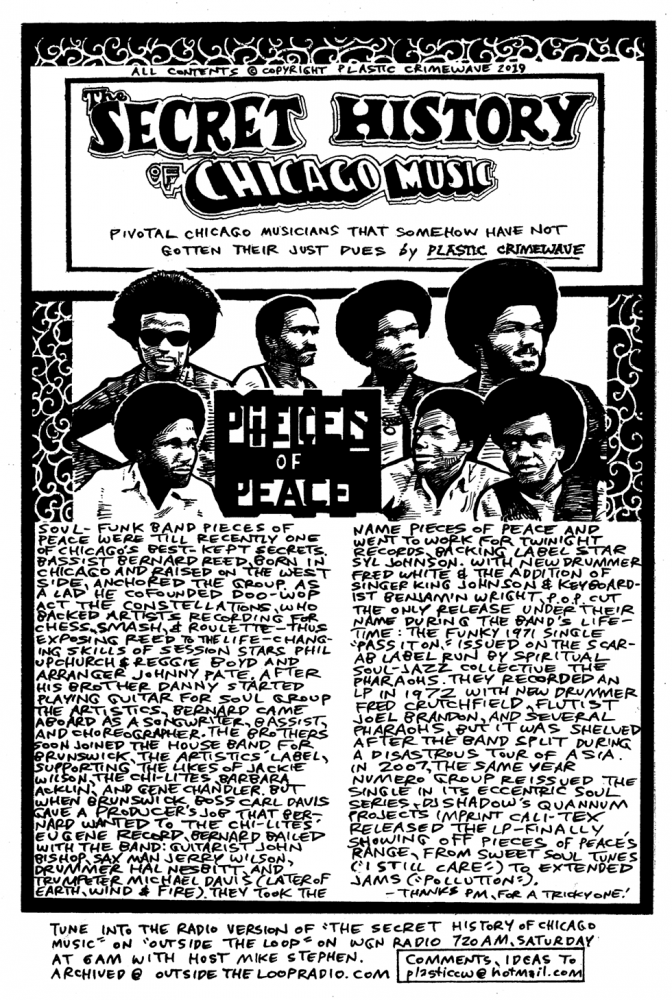 ALL CONTENTS © COPYRIGHT PLASTIC CRIMEWAVE 2019
The SECRET HISTORY
OF CHICAGO MUSIC
PIVOTAL CHICAGO MUSICIANS THAT SOMEHOW HAVE NOT
GOTTEN THEIR JUST DUES by PLASTIC CRIMEWAVE
PIECES
OF
PEACE
SOUL-FUNK BAND PIECES OF
PEACE WERE TILL RECENTLY ONE
OF CHICAGO'S BEST-KEPT SECRETS.
BASSIST BERNARD REED, BORN IN
CHICAGO AND RAISED ON THE WEST
SIDE, ANCHORED THE GROUP. AS
A LAD HE COFOUNDED DOO-WOP
ACT THE CONSTELLATIONS, WHO
BACKED ARTISTS RECORDING FOR
CHESS, SMASH, & ROULETTE—THUS
EXPOSING REED TO THE LIFE-CHANG-
ING SKILLS OF SESSION STARS PHIL
UPCHURCH & REGGIE BOYD AND
ARRANGER JOHNNY PATE. AFTER
HIS BROTHER DANNY STARTED
PLAYING GUITAR FOR SOUL GROUP
THE ARTISTICS, BERNARD CAME
ABOARD AS A SONGWRITER, BASSIST,
AND CHOREOGRAPHER. THE BROTHERS
SOON JOINED THE HOUSE BAND FOR
BRUNSWICK, THE ARTISTICS' LABEL,
SUPPORTING THE LIKES OF JACKIE
WILSON, THE CHI-LITES, BARBARA
ACKLIN, AND GENE CHANDLER. BUT
WHEN BRUNSWICK BOSS CARL DAVIS
GAVE A PRODUCER'S JOB THAT BER-
NARD WANTED TO THE CHI-LITES'
EUGENE RECORD, BERNARD BAILED
WITH THE BAND: GUITARIST JOHN
BISHOP, SAX MAN JERRY WILSON,
DRUMMER HAL NESBITT, AND
TRUMPETER MICHAEL DAVIS (LATER OF
EARTH, WIND & FIRE). THEY TOOK THE
NAME PIECES OF PEACE AND
WENT TO WORK FOR TWINIGHT
RECORDS, BACKING LABEL STAR
SYL JOHNSON. WITH NEW DRUMMER
FRED WHITE & THE ADDITION OF
SINGER KING JOHNSON & KEYBOARD-
IST BENJAMIN WRIGHT, P.O.P. CUT
THE ONLY RELEASE UNDER THEIR
NAME DURING THE BAND'S LIFE-
TIME: THE FUNKY 1971 SINGLE
"PASS IT ON," ISSUED ON THE SCAR-
AB LABEL RUN BY SPIRITUAL
SOUL-JAZZ COLLECTIVE THE
PHARAOHS. THEY RECORDED AN
LP IN 1972 WITH NEW DRUMMER
FRED CRUTCHFIELD, FLUTIST
JOEL BRANDON, AND SEVERAL
PHARAOHS, BUT IT WAS SHELVED
AFTER THE BAND SPLIT DURING
A DISASTROUS TOUR OF ASIA.
IN 2007, THE SAME YEAR
NUMERO GROUP REISSUED THE
SINGLE IN ITS ECCENTRIC SOUL
SERIES, DJ SHADOW'S QUANNUM
PROJECTS IMPRINT CALI-TEX
RELEASED THE LP—FINALLY
SHOWING OFF PIECES OF PEACE'S
RANGE, FROM SWEET SOUL TUNES
("I STILL CARE") TO EXTENDED
JAMS ("POLLUTION").
-THANKS PM, FOR A TRICKY ONE!
TUNE INTO THE RADIO VERSION OF "THE SECRET HISTORY OF CHICAGO
MUSIC" ON "OUTSIDE THE LOOP" ON WGN RADIO 720 AM, SATURDAY
AT 6AM WITH HOST MIKE STEPHEN.
ARCHIVED @ OUTSIDETHELOOPRADIO.COM
COMMENTS, IDEAS TO
plasticcw@hotmail.com